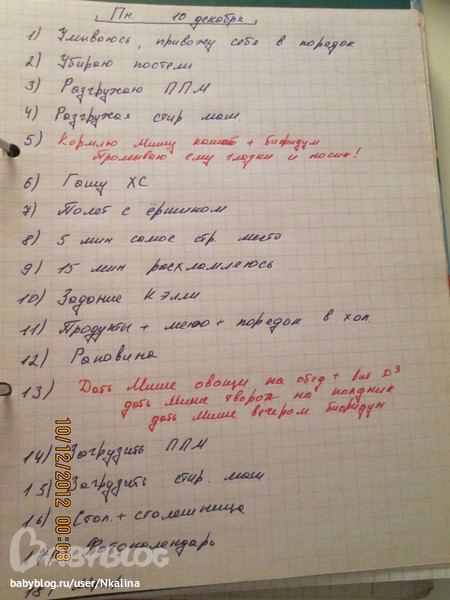 Пн. 10 декабря
1) Умываюсь, привожу себя в порядок
2) Убираю постели
3) Разгружаю ППМ
4) Разгружая стир маш.
5) Кормлю Мишу кашей + бифидум
Промываю ему глазки и носик!
6) Гашу ХС
7) Полет с ёршиком
8) 5 мин самое стр. место
9) 15 мин расхламляюсь
10) Задание Кэлли
11) Продукты + меню + порядок в хол
12) Раковина
13) Дать Мише овощи на обед + вит D3
дать Мише творог на полдник
дать Мише вечером бифидум
14) Загрузить ППМ
15) Загрузить стир. маш
16) Стол. + столешница
17) Фотокалендарь
18)
10/12/2012 00:08
BABYBLOG
babyblog.ru/user/Nkalina